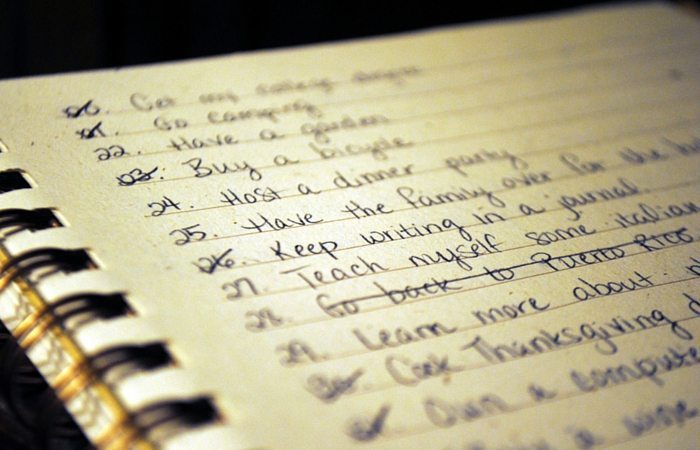 20. Get my college degree
21. Go camping
22. Have a garden
23. Buy a bicycle
24. Host a dinner party
25. Have the family over for the
26. Keep writing in a journal.
27. Teach myself some italian
28. Go back to Puerto Rico
29. Learn more about
30. Cook Thanksgiving
31. Own a compute
a